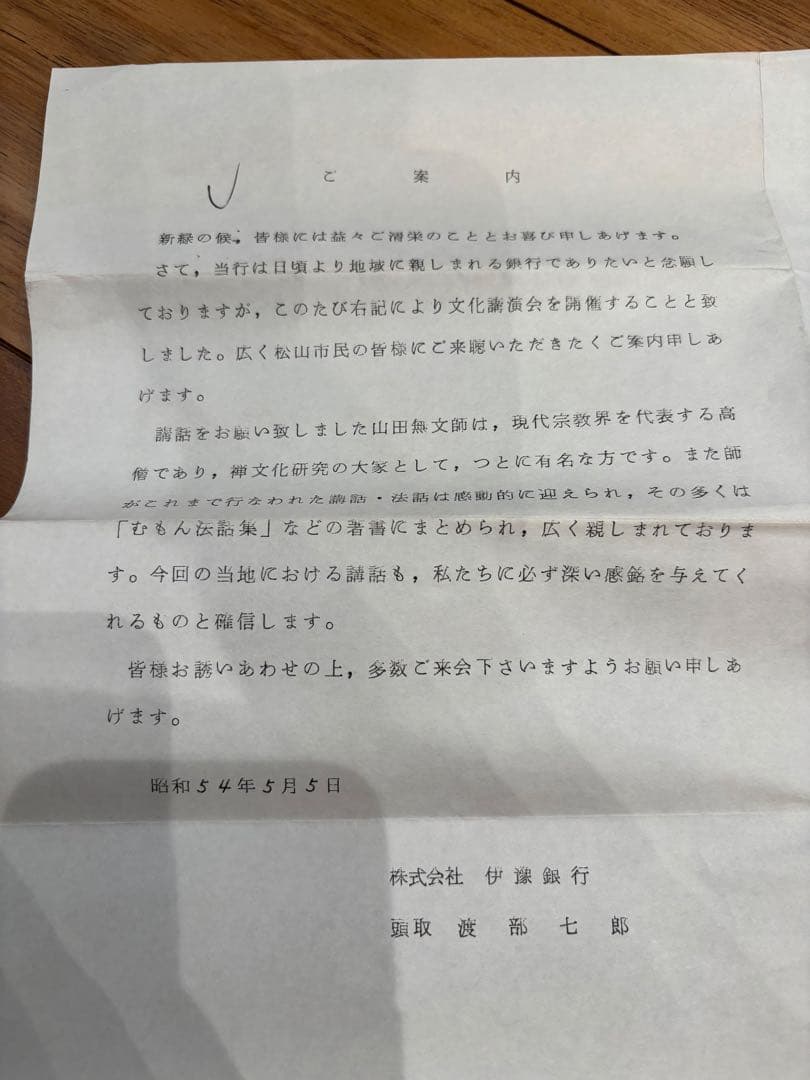 ご案内
新緑の候，皆様には益々ご清栄のこととお喜び申しあげます。
さて，当行は日頃より地域に親しまれる銀行でありたいと念願し
ておりますが，このたび右記により文化講演会を開催することと致
しました。広く松山市民の皆様にご来聴いただきたくご案内申しあ
げます。
講話をお願い致しました山田無文師は，現代宗教界を代表する高
僧であり，禅文化研究の大家として，つとに有名な方です。また師
がこれまで行なわれた講話・法話は感動的に迎えられ，その多くは
「むもん法話集」などの著書にまとめられ，広く親しまれておりま
す。今回の当地における講話も，私たちに必ず深い感銘を与えてく
れるものと確信します。
皆様お誘いあわせの上，多数ご来会下さいますようお願い申しあ
げます。
昭和54年5月5日
株式会社 伊豫銀行
頭取 渡部七郎